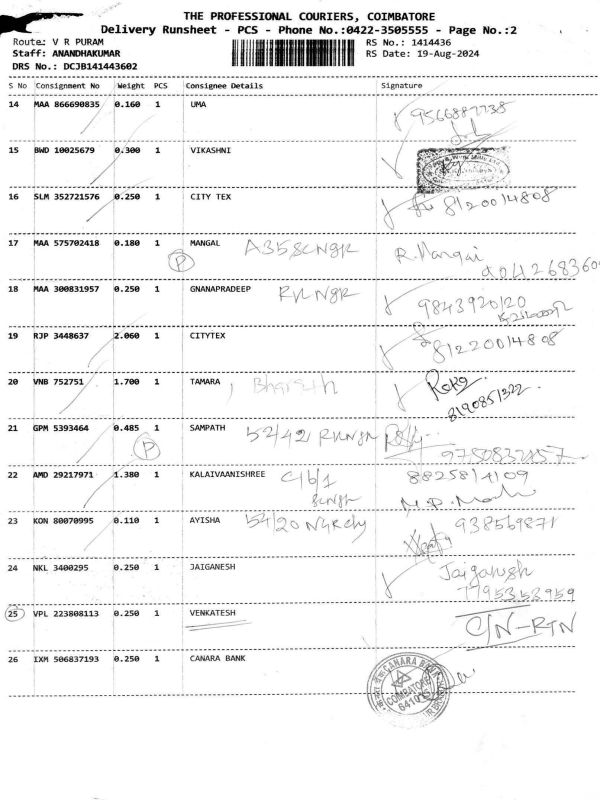 THE PROFESSIONAL COURIERS, COIMBATORE
Delivery Runsheet - PCS - Phone No.:0422-3505555 - Page No.:2
Route: V R PURAM RS No.: 1414436
Staff: ANANDHAKUMAR RS Date: 19-Aug-2024
DRS No.: DCJB141443602
S No Consignment No Weight PCS Consignee Details Signature
14 MAA 866690835 0.160 1 UMA
15 BWD 10025679 0.300 1 VIKASHNI
16 SLM 352721576 0.250 1 CITY TEX 8120014808
17 MAA 575702418 0.180 1 MANGAL R. Mangai
P
18 MAA 300831957 0.250 1 GNANAPRADEEP 9843920120
19 RJP 3448637 2.060 1 CITYTEX 8122014808
20 VNB 752751 1.700 1 TAMARA Bharath
8190851322
21 GPM 5393464 0.485 1 SAMPATH 52/42
P
22 AMD 29217971 1.380 1 KALAIVAANISHREE
23 KON 80070995 0.110 1 AYISHA 54/20 938569871
24 NKL 3400295 0.250 1 JAIGANESH Jaiganesh
7795353959
25 VPL 223808113 0.250 1 VENKATESH C/N-RTN
26 IXM 506837193 0.250 1 CANARA BANK
CANARA BANK
COIMBATORE